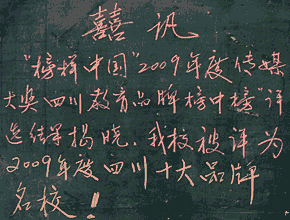 囍讯
“榜样中国”2009年度传媒
大奖四川教育品牌榜中榜“评
选结果揭晓。我校被评为
2009年度四川十大品牌
名校！